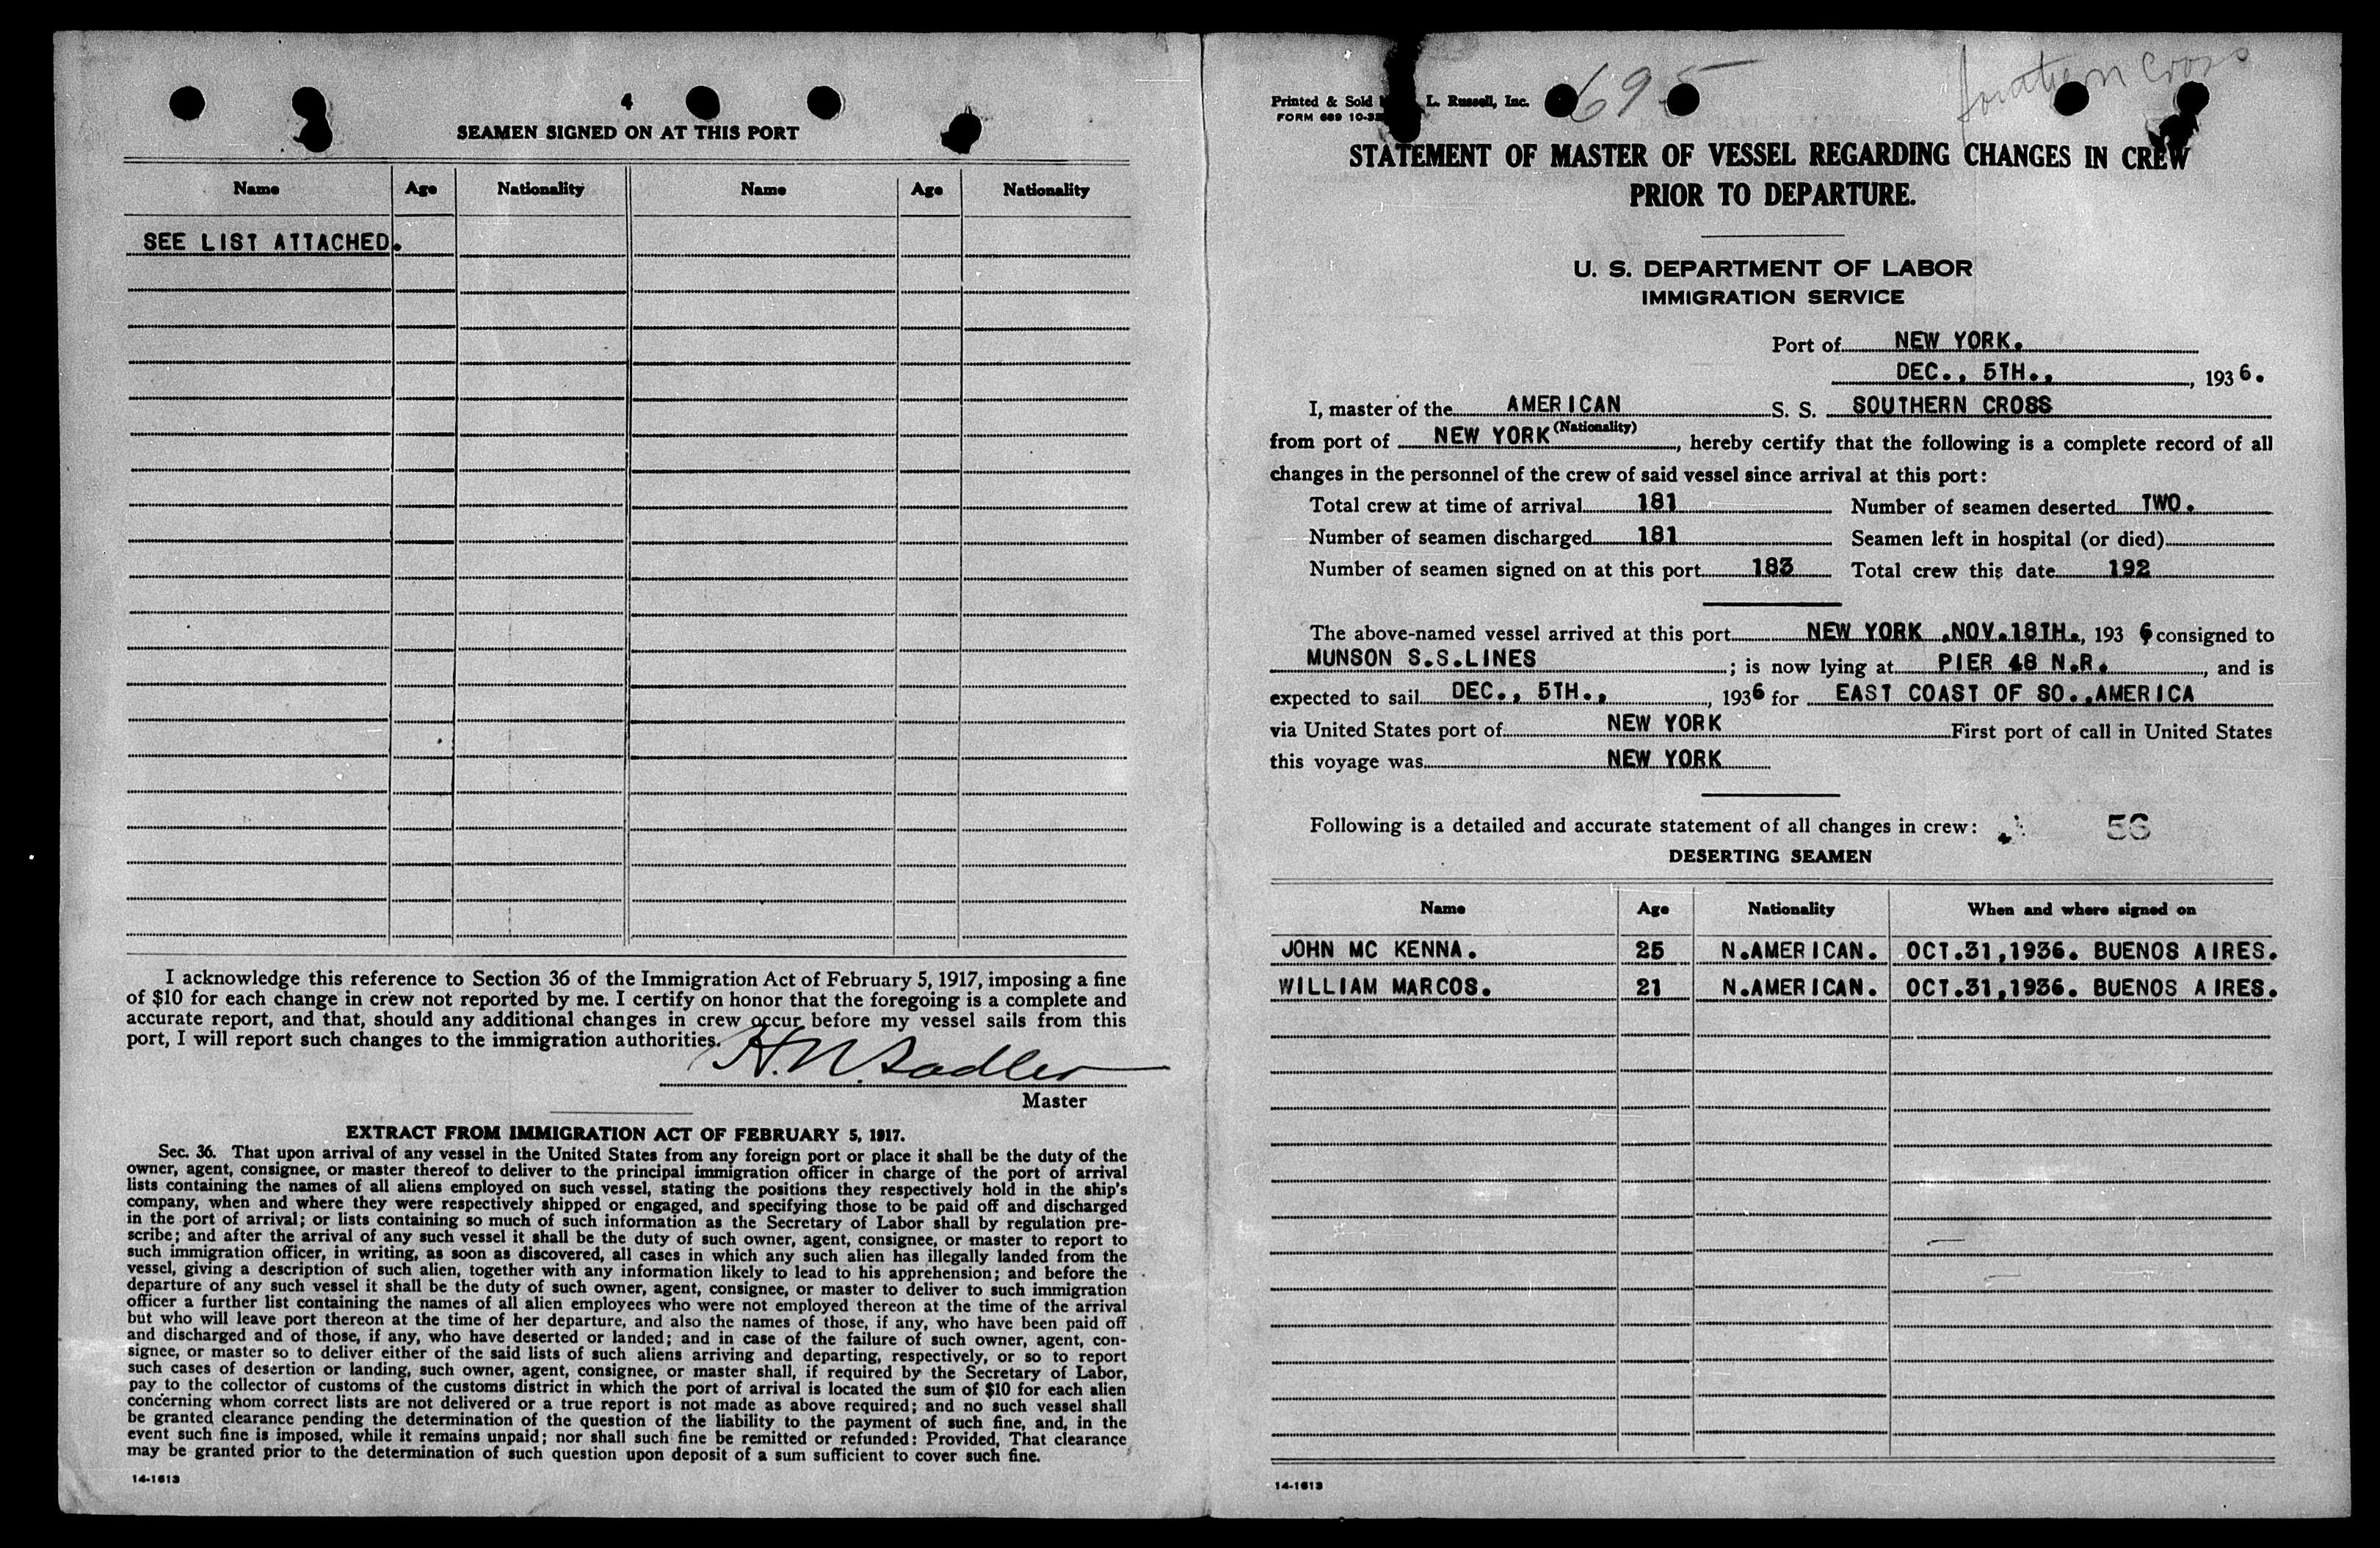 4
SEAMEN SIGNED ON AT THIS PORT
Name Age Nationality Name Age Nationality
SEE LIST ATTACHED.
I acknowledge this reference to Section 36 of the Immigration Act of February 5, 1917, imposing a fine
of $10 for each change in crew not reported by me. I certify on honor that the foregoing is a complete and
accurate report, and that, should any additional changes in crew occur before my vessel sails from this
port, I will report such changes to the immigration authorities.
H. N. Sadler
Master
EXTRACT FROM IMMIGRATION ACT OF FEBRUARY 5, 1917.
Sec. 36. That upon arrival of any vessel in the United States from any foreign port or place it shall be the duty of the
owner, agent, consignee, or master thereof to deliver to the principal immigration officer in charge of the port of arrival
lists containing the names of all aliens employed on such vessel, stating the positions they respectively hold in the ship's
company, when and where they were respectively shipped or engaged, and specifying those to be paid off and discharged
in the port of arrival; or lists containing so much of such information as the Secretary of Labor shall by regulation pre-
scribe; and after the arrival of any such vessel it shall be the duty of such owner, agent, consignee, or master to report to
such immigration officer, in writing, as soon as discovered, all cases in which any such alien has illegally landed from the
vessel, giving a description of such alien, together with any information likely to lead to his apprehension; and before the
departure of any such vessel it shall be the duty of such owner, agent, consignee, or master to deliver to such immigration
officer a further list containing the names of all alien employees who were not employed thereon at the time of the arrival
but who will leave port thereon at the time of her departure, and also the names of those, if any, who have been paid off
and discharged and of those, if any, who have deserted or landed; and in case of the failure of such owner, agent, con-
signee, or master so to deliver either of the said lists of such aliens arriving and departing, respectively, or so to report
such cases of desertion or landing, such owner, agent, consignee, or master shall, if required by the Secretary of Labor,
pay to the collector of customs of the customs district in which the port of arrival is located the sum of $10 for each alien
concerning whom correct lists are not delivered or a true report is not made as above required; and no such vessel shall
be granted clearance pending the determination of the question of the liability to the payment of such fine, and, in the
event such fine is imposed, while it remains unpaid; nor shall such fine be remitted or refunded: Provided, That clearance
may be granted prior to the determination of such question upon deposit of a sum sufficient to cover such fine.
14-1613
Southern Cross
695
Printed & Sold L. Russell, Inc.
FORM 689
STATEMENT OF MASTER OF VESSEL REGARDING CHANGES IN CREW
PRIOR TO DEPARTURE.
U. S. DEPARTMENT OF LABOR
IMMIGRATION SERVICE
Port of NEW YORK.
DEC., 5TH., , 1936.
I, master of the AMERICAN S. S. SOUTHERN CROSS
(Nationality)
from port of NEW YORK, hereby certify that the following is a complete record of all
changes in the personnel of the crew of said vessel since arrival at this port:
Total crew at time of arrival 181 Number of seamen deserted TWO.
Number of seamen discharged 181 Seamen left in hospital (or died)
Number of seamen signed on at this port 183 Total crew this date 192
The above-named vessel arrived at this port NEW YORK ,NOV.18TH., 193 6 consigned to
MUNSON S.S.LINES ; is now lying at PIER 48 N.R. , and is
expected to sail DEC., 5TH., , 1936 for EAST COAST OF SO.,AMERICA
via United States port of NEW YORK First port of call in United States
this voyage was NEW YORK
Following is a detailed and accurate statement of all changes in crew:
DESERTING SEAMEN
Name Age Nationality When and where signed on
JOHN MC KENNA. 25 N.AMERICAN. OCT.31,1936. BUENOS AIRES.
WILLIAM MARCOS. 21 N.AMERICAN. OCT.31,1936. BUENOS AIRES.
14-1613